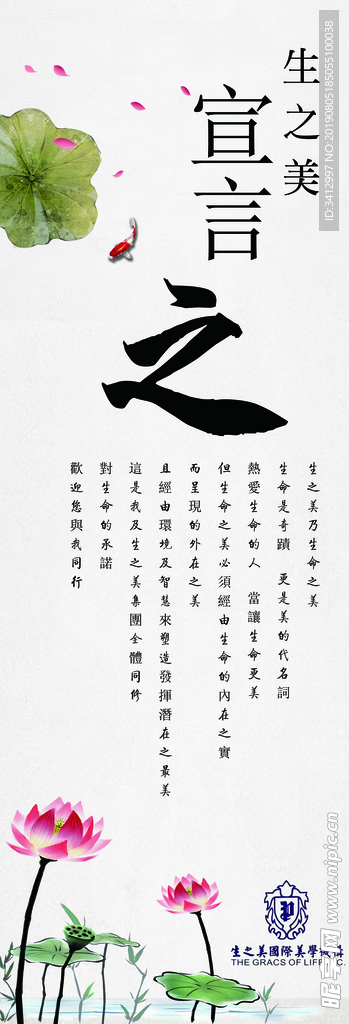 生之美
宣言
之
生之美乃生命之美
生命是奇蹟　更是美的代名詞
熱愛生命的人　當讓生命更美
但生命之美必須經由生命的內在之實
而呈現的外在之美
且經由環境及智慧來塑造發揮潛在之最美
這是我及生之美集團全體同修
對生命的承諾
歡迎您與我同行
生之美國際美學
THE GRACS OF LIFE
ID:3412997 NO:20190805185055100038
昵享网 www.nipic.cn